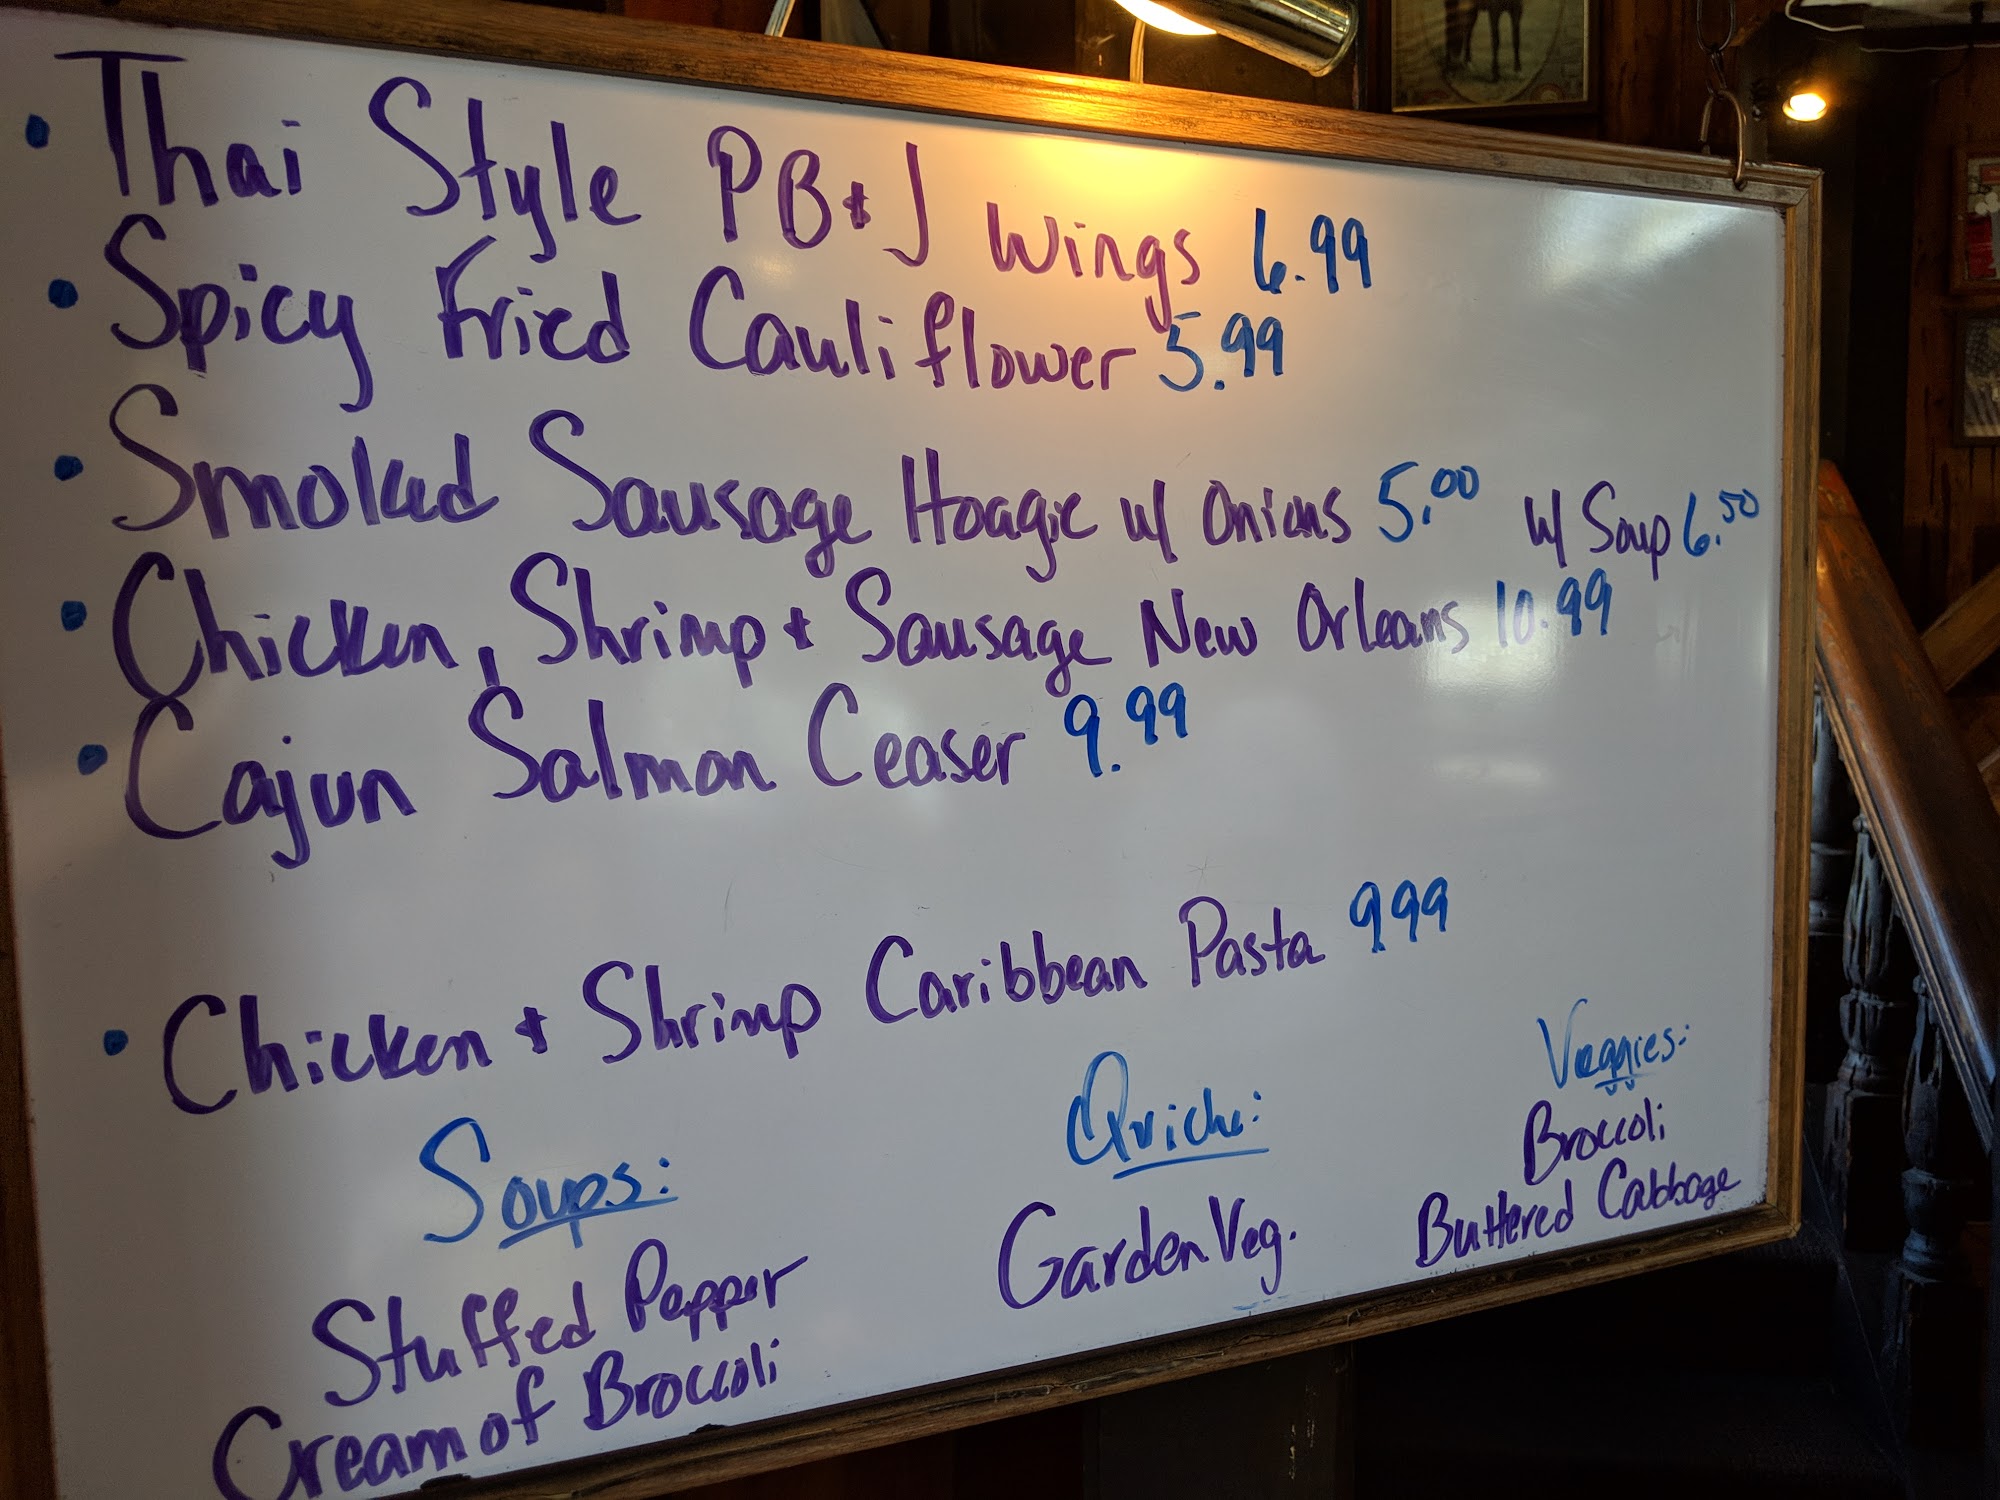 • Thai Style PB+J Wings 6.99
• Spicy Fried Cauliflower 5.99
• Smoked Sausage Hoagie w/ Onions 5.00 w/ Soup 6.50
• Chicken, Shrimp + Sausage New Orleans 10.99
• Cajun Salmon Ceaser 9.99
• Chicken + Shrimp Caribbean Pasta 9.99
Soups:
Stuffed Pepper
Cream of Broccoli
Quiche:
Garden Veg.
Veggies:
Broccoli
Buttered Cabbage